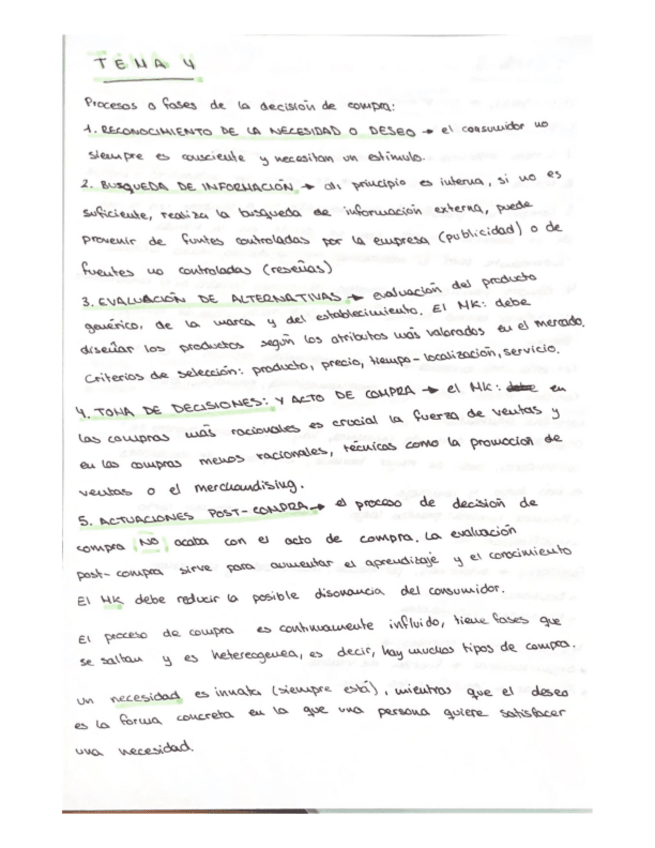 TEMA 4
Procesos o fases de la decisión de compra:
1. RECONOCIMIENTO DE LA NECESIDAD O DESEO → el consumidor no
siempre es consciente y necesitan un estímulo.
2. BUSQUEDA DE INFORMACIÓN → al principio es interna, si no es
suficiente, realiza la búsqueda de información externa, puede
provenir de funtes controladas por la empresa (publicidad) o de
fuentes no controladas (reseñas)
3. EVALUACIÓN DE ALTERNATIVAS → evaluación del producto
genérico, de la marca y del establecimiento. El MK: debe
diseñar los productos según los atributos más valorados en el mercado.
Criterios de selección: producto, precio, tiempo-localización, servicio.
4. TOMA DE DECISIONES: Y ACTO DE COMPRA → el MK: debe en
las compras más racionales es crucial la fuerza de ventas y
en las compras menos racionales, técnicas como la promoción de
ventas o el merchandising.
5. ACTUACIONES POST-COMPRA → el proceso de decisión de
compra NO acaba con el acto de compra. La evaluación
post-compra sirve para aumentar el aprendizaje y el conocimiento
El MK debe reducir la posible disonancia del consumidor.
El proceso de compra es continuamente influido, tiene fases que
se saltan y es hetereogenea, es decir, hay muchos tipos de compra.
Un necesidad es innata (siempre está), mientras que el deseo
es la forma concreta en la que una persona quiere satisfacer
una necesidad.